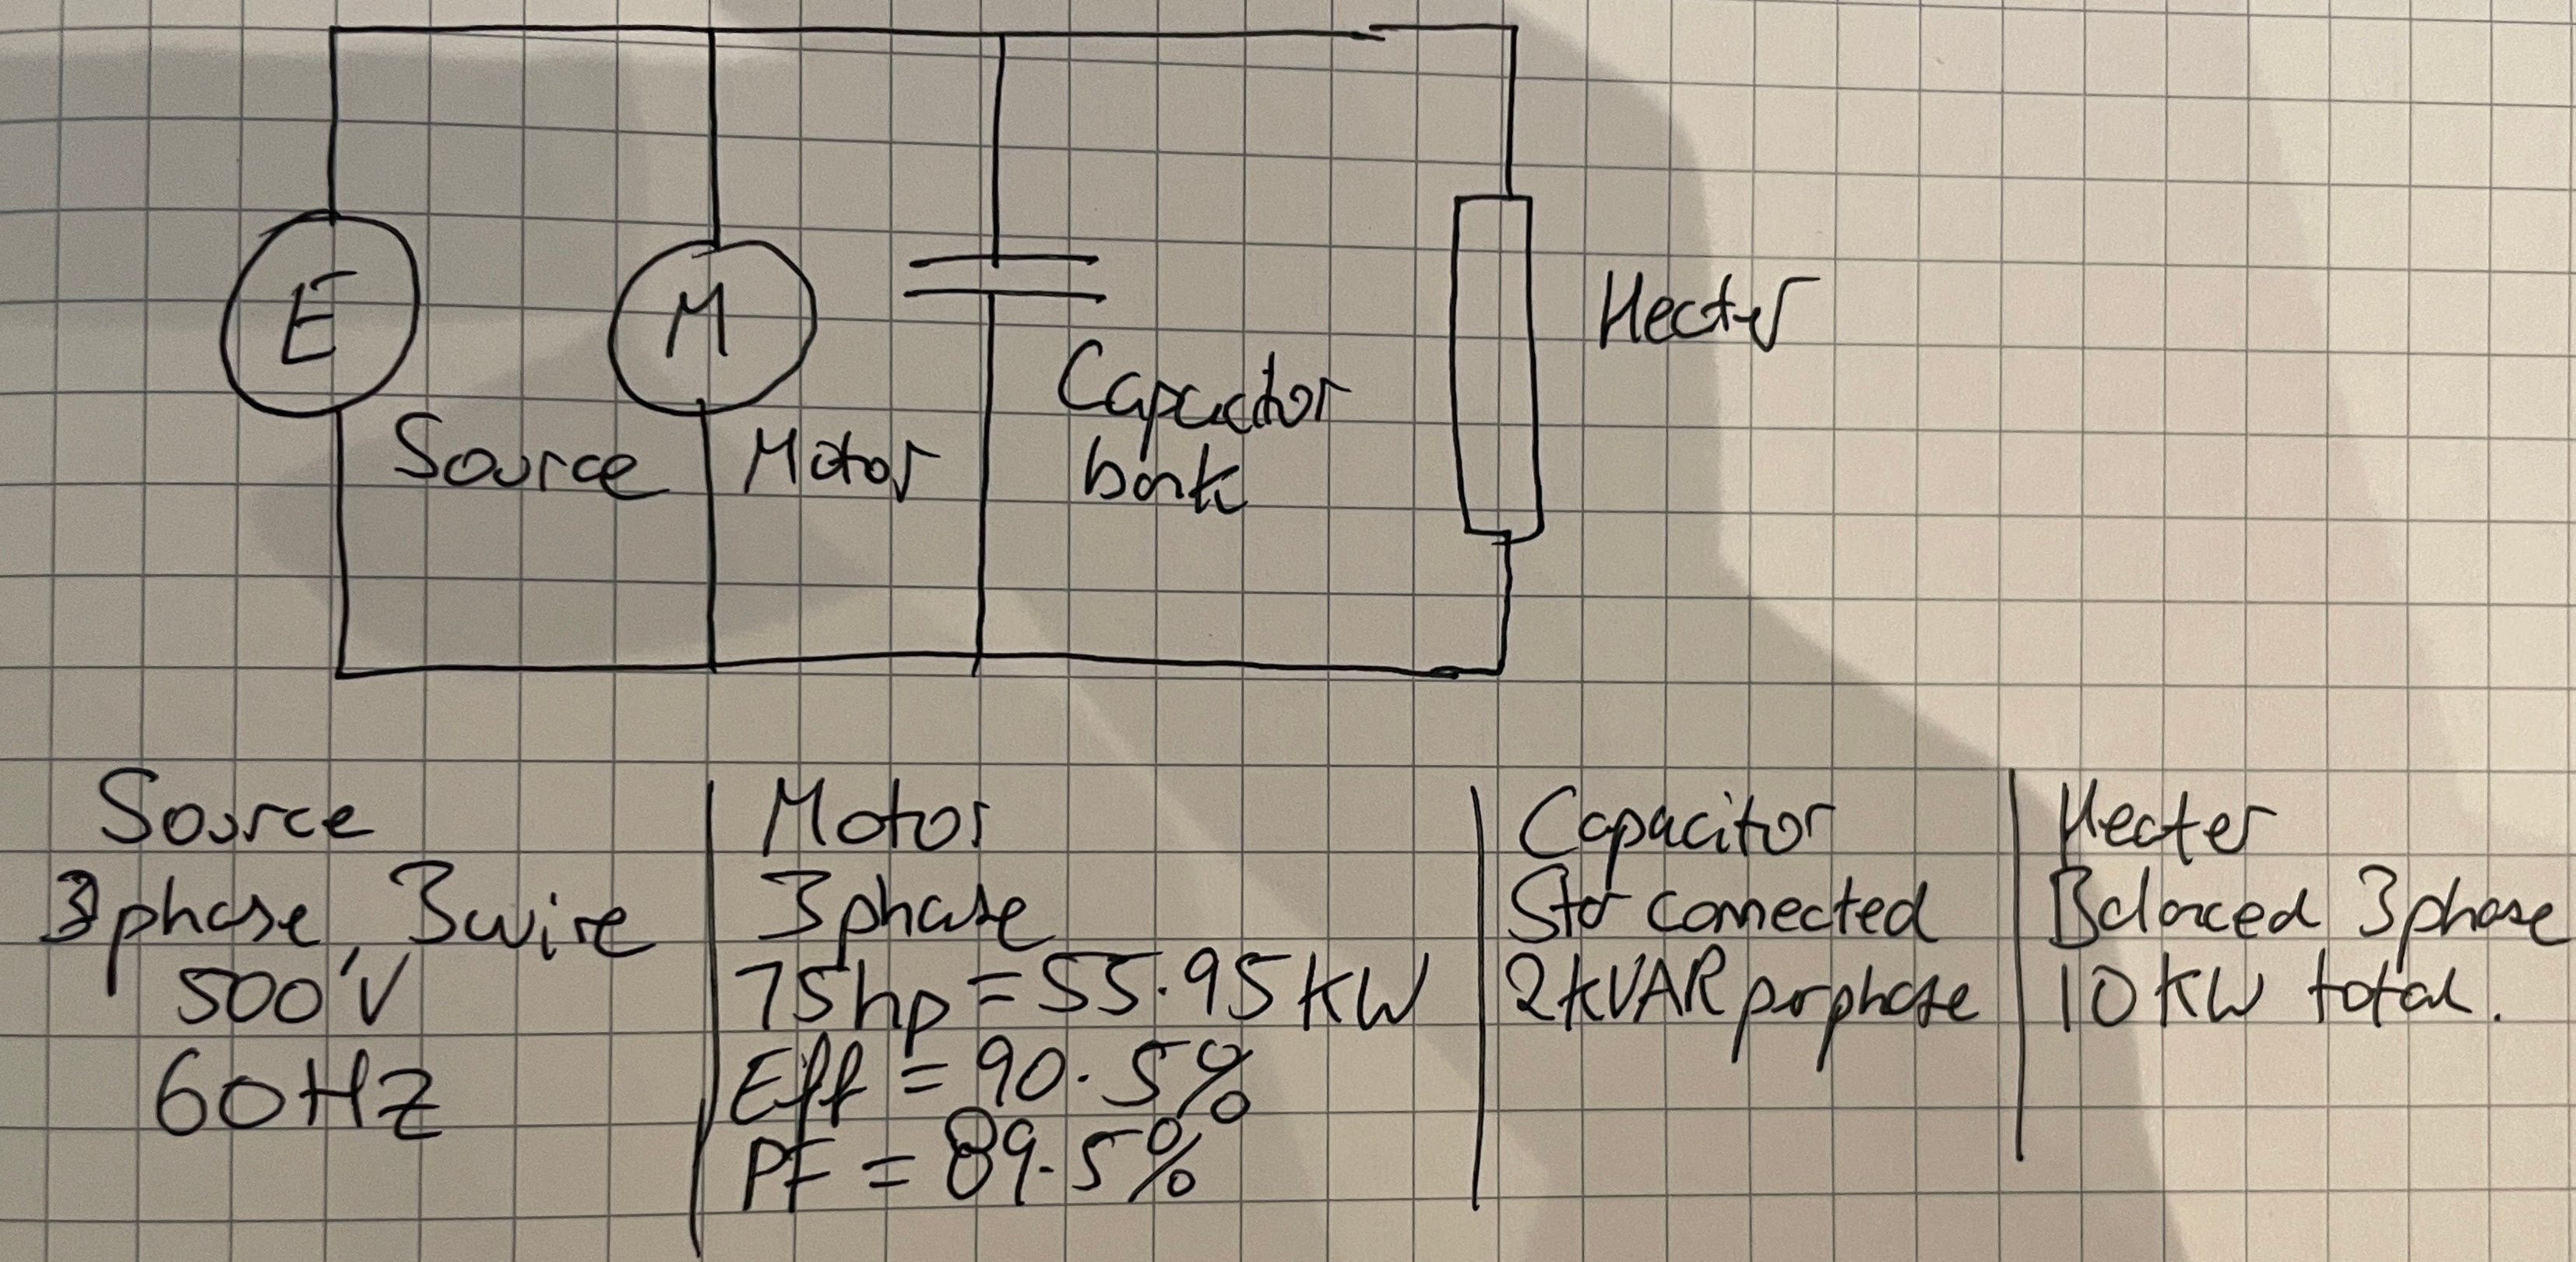 E
M
Source
Motor
Capacitor
bank
Heater
Source
3 phase, 3 wire
500 V
60 HZ
Motor
3 phase
75hp = 55.95 KW
Eff = 90.5%
PF = 89.5%
Capacitor
Star connected
2 kVAR per phase
Heater
Balanced 3 phase
10 KW total.